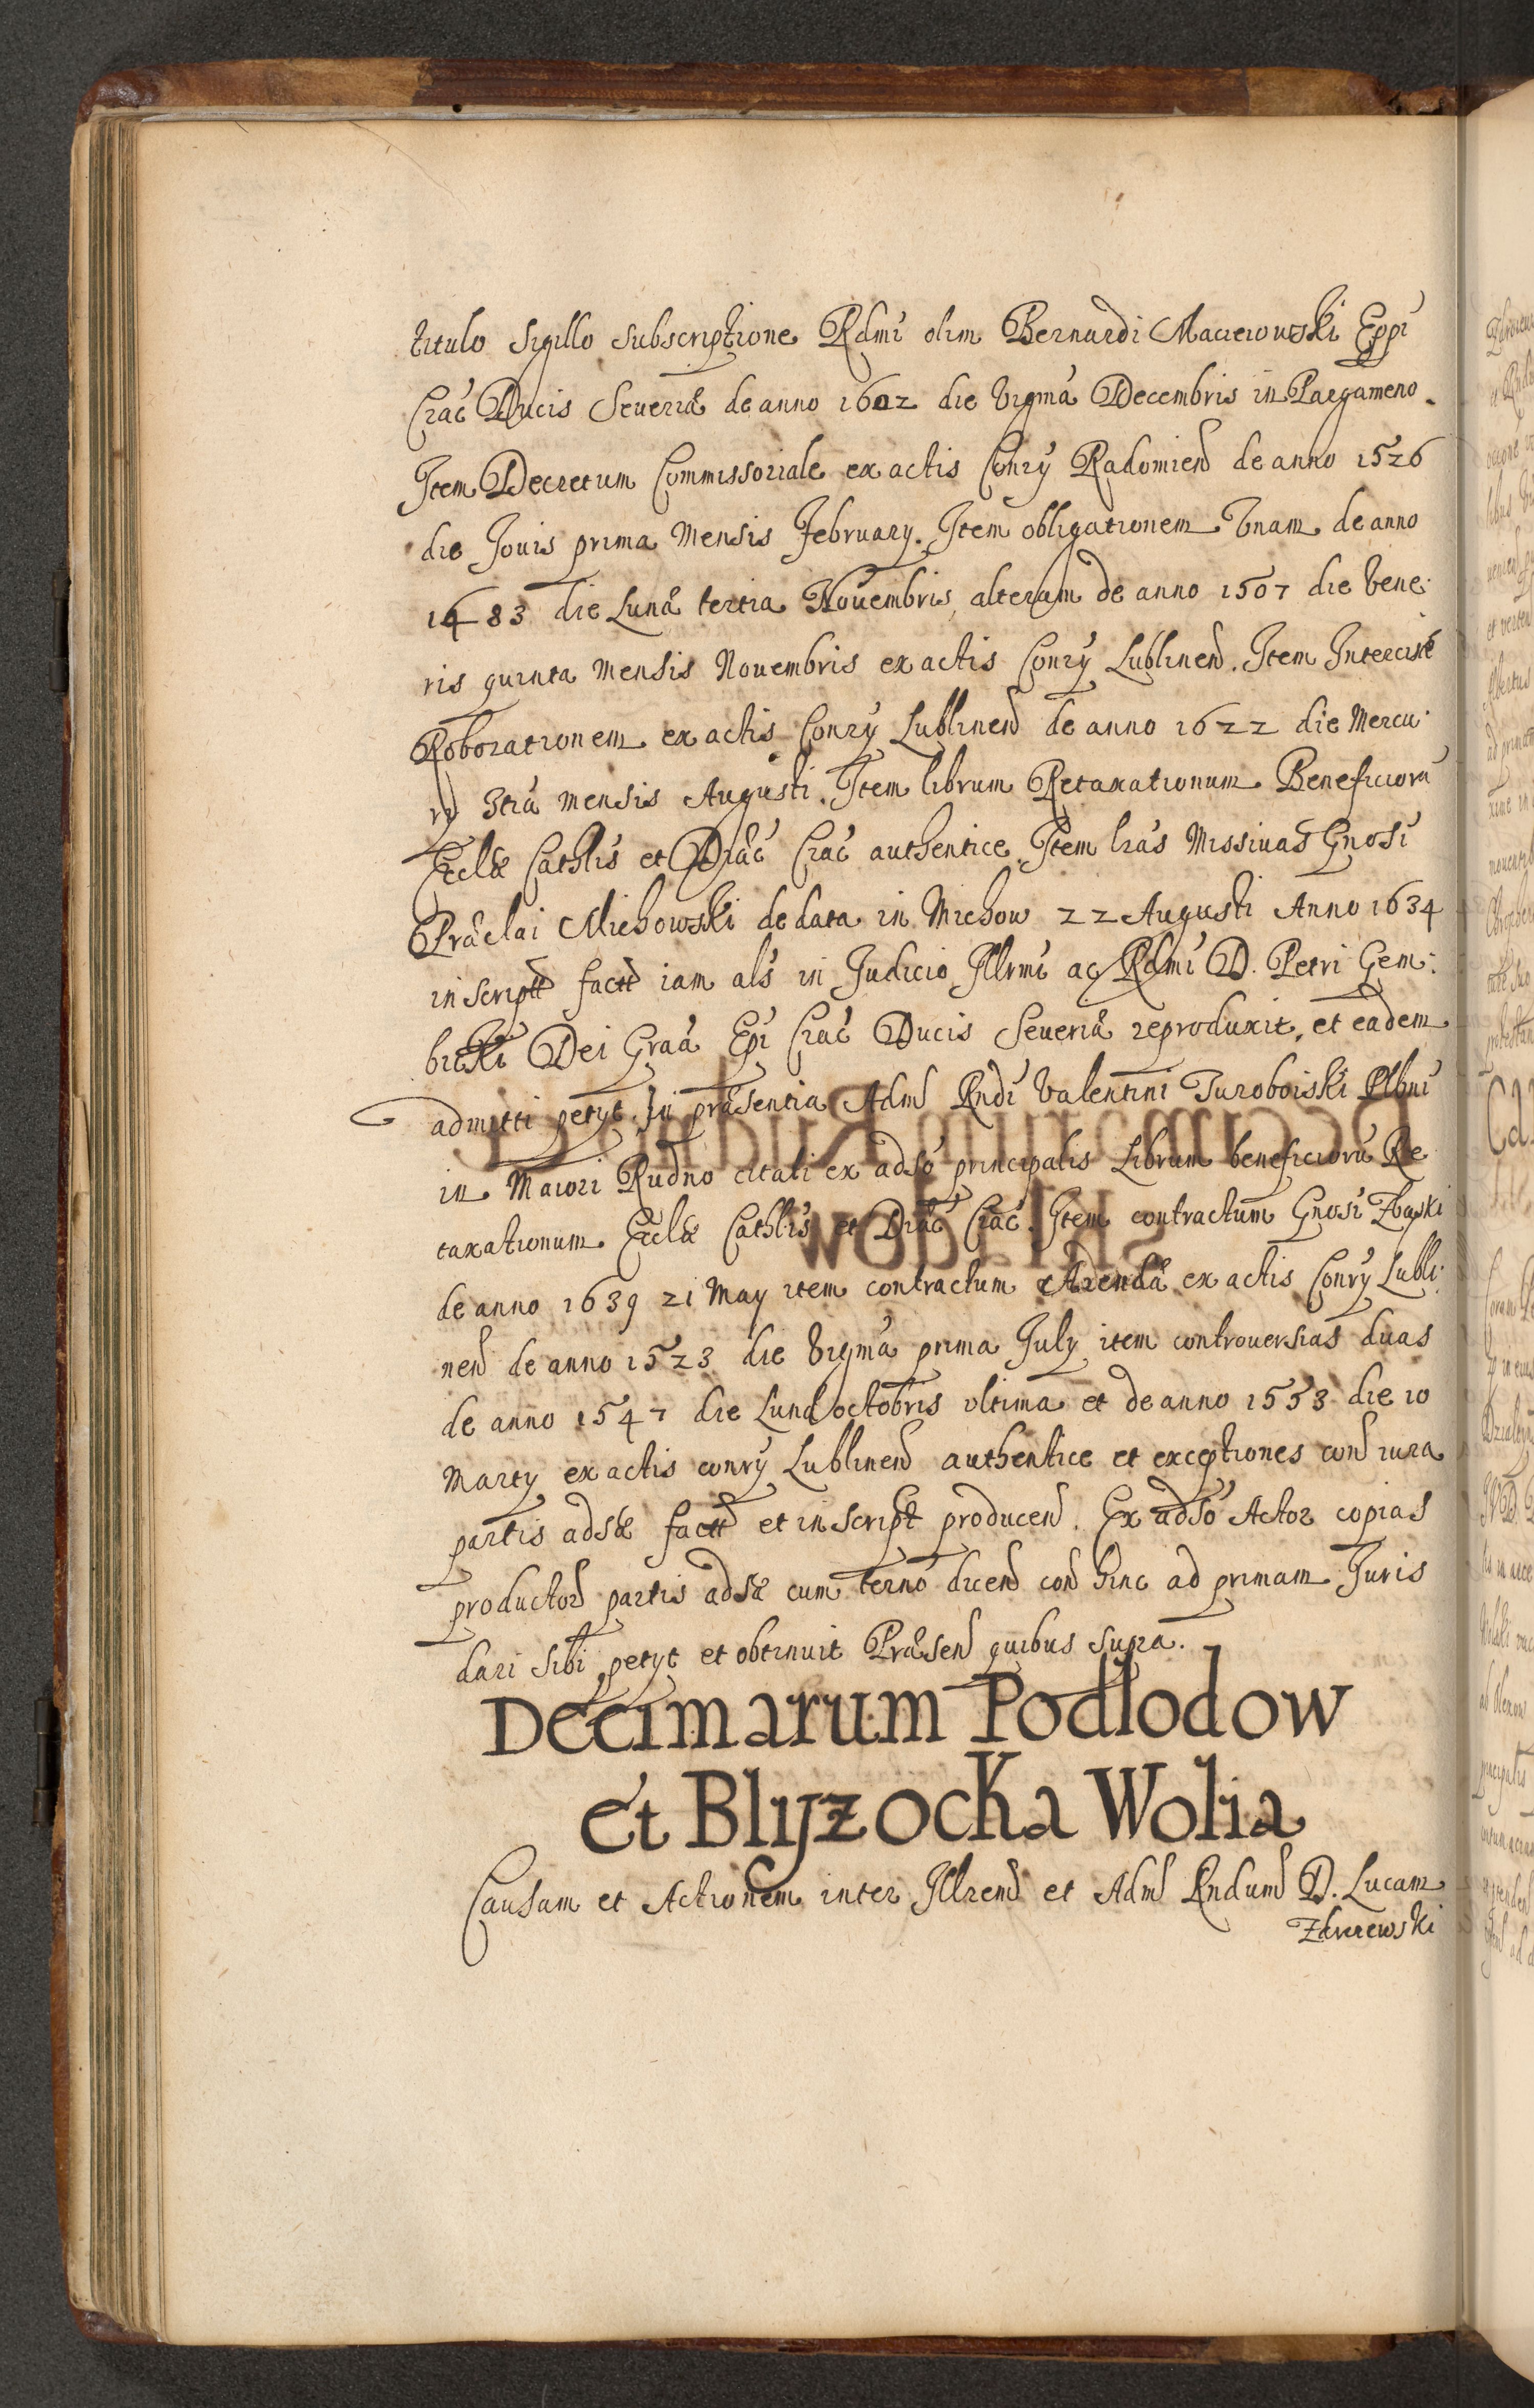 titulo Sigillo subscriptione Rdmi olim Bernardi Macieiowski Eppi
Crac Ducis Severiæ de anno 1602 die vigma Decembris in Pargameno.
Item Decretum Commissoriale ex actis Conrÿ Radomien de anno 1526
die Jouis prima mensis February. Item obligationem vnam de anno
1483 die Lunæ tertia Nouembris, alteram de anno 1507 die vene:
ris quinta mensis Nouembris ex actis Conrÿ Lublinen. Item Intercisæ
Roborationem ex actis Conrÿ Lublinen de anno 1622 die Mercu:
rÿ 3tia mensis Augusti. Item librum Retaxationum Beneficiorū
Ecclæ Cathlis et Diæc Crac authentice. Item lras Missiuas Gnosi
Præclai Michowski de data in Michow 22 Augusti Anno 1634
in scriptt factt iam als in Judicio Illrmi ac Rdmi D. Petri Gem:
bicki Dei Graa Epi Crac Ducis Seueriæ reproduxit, et eadem
admitti petyt. In præsentia Adm Rndi Valentini Turoboiski Plbni
in Maiori Rudno citati ex adso principalis Librum beneficiorū Re
taxationum Ecclæ Cathlis et Diæc Crac. Item contractum Gnosi Zbąski
de anno 1639 21 May item contractum Arendæ ex actis Conrÿ Lubli:
nen de anno 1523 die vigma prima July item controuersias duas
de anno 1547 die Lunæ octobris vltima et de anno 1553 die 10
Marty ex actis conrÿ Lublinen authentice et exceptiones con iura
partis adsæ factt et in script producen. Ex adso Actor copias
productor partis adsæ cum termo dicen con hinc ad primam Juris
dari sibi petyt et obtinuit Præsen quibus supra.
Decimarum Podlodow
et Blyzocka Wolia
Causam et Actionem inter Illrem et Adm Rndum D. Lucam